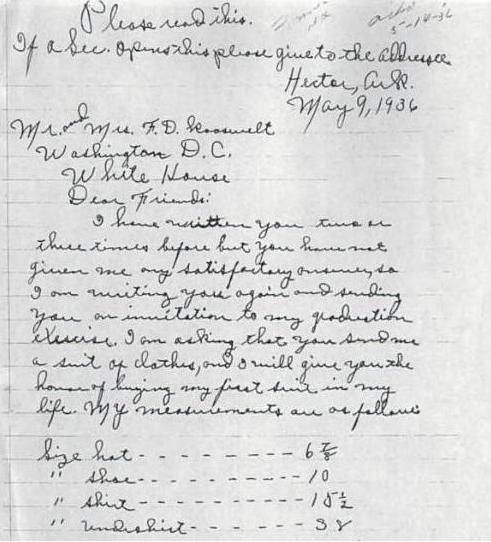 Please read this.
If a Sec. opens this please give to the addressee
Hector, Ark.
May 9, 1936
Mr. and Mrs. F. D. Roosevelt
Washington D.C.
White House
Dear Friends:
I have written you two or
three times before but you have not
given me any satisfactory answer, so
I am writing you again and sending
you an invitation to my graduation
exercise. I am asking that you send me
a suit of clothes, and I will give you the
honor of buying my first suit in my
life. My measurements are as follows
Size hat - - - - - - - - - 6 7/8
" shoe - - - - - - - - - 10
" shirt - - - - - - - - - 15 1/2
" undershirt - - - - - - 38